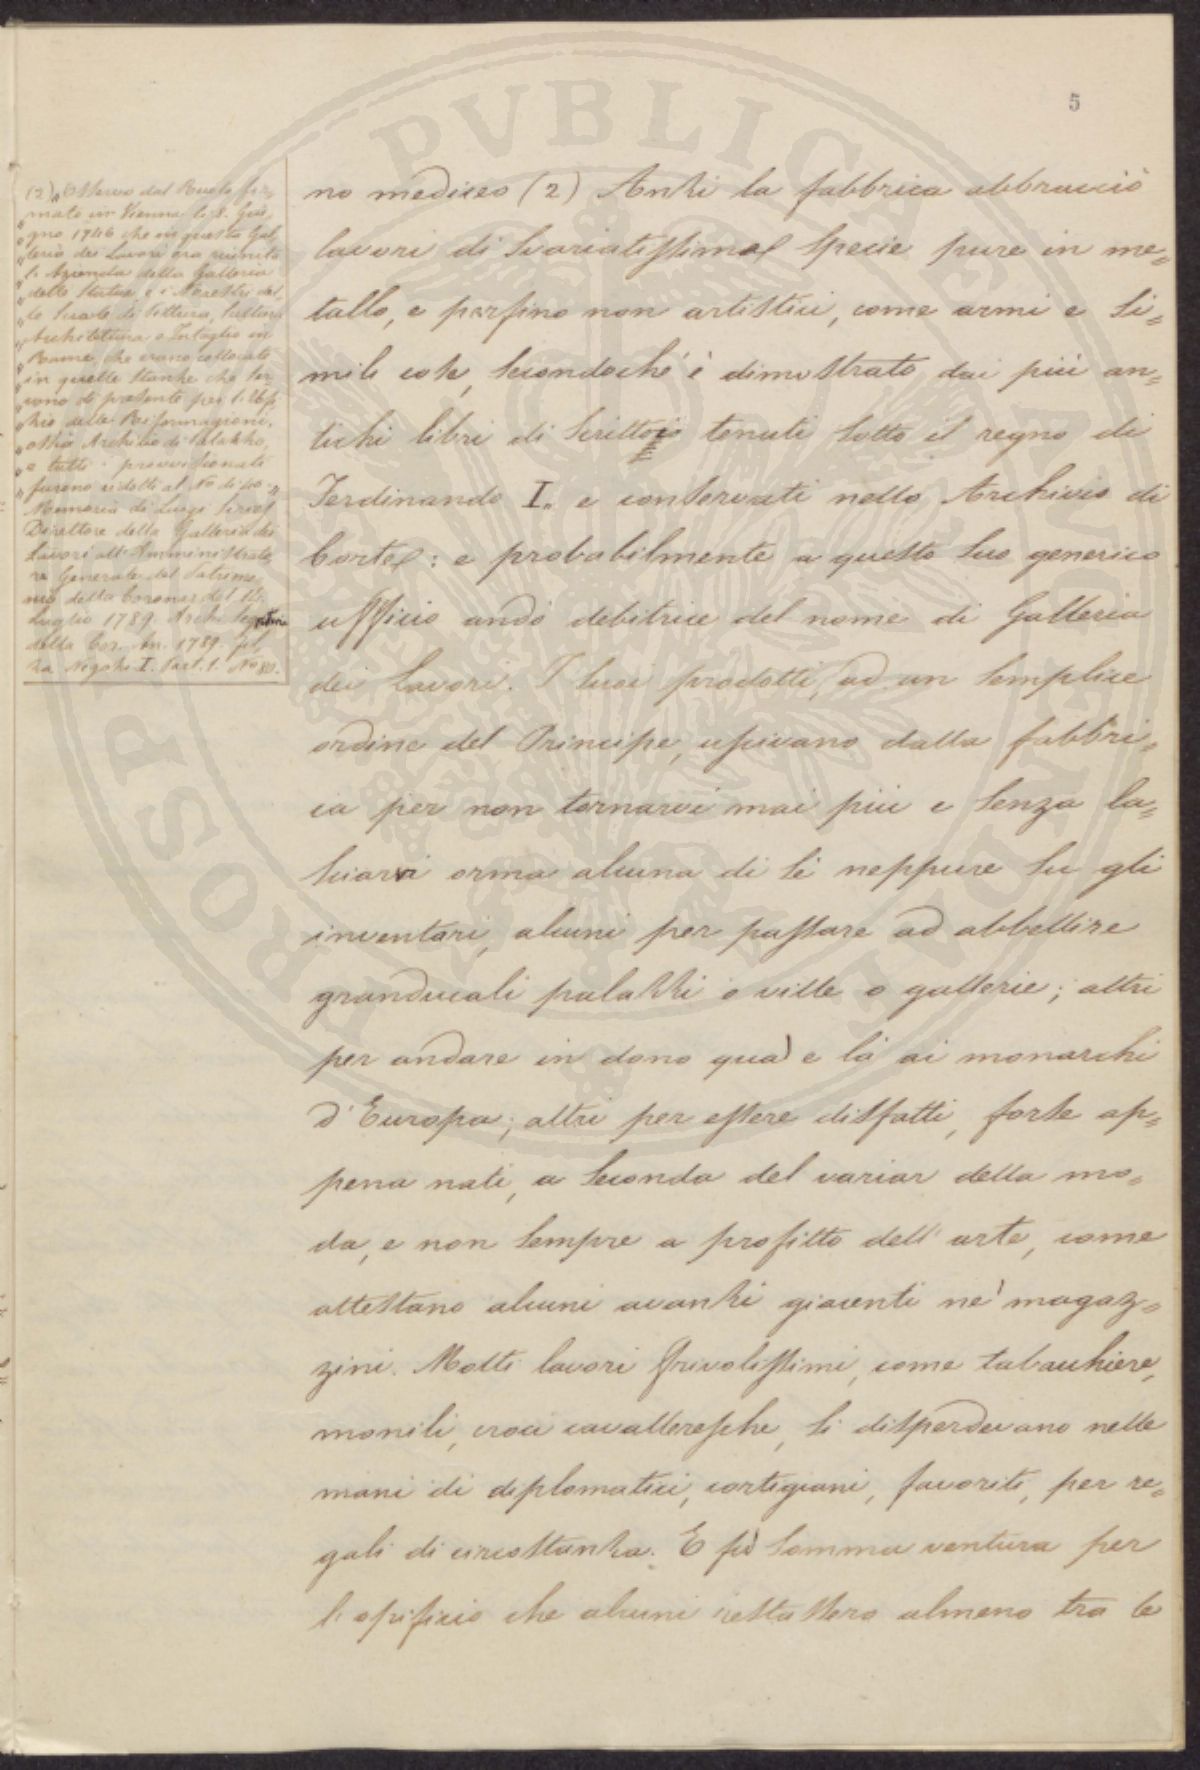 5
(2) „Osservo dal Ruolo fir-
„mato in Vienna li 8. Giu-
„gno 1746 che in questa Gal-
„leria dei Lavori era riunita
„l'Azienda della Galleria
„delle Statue, e i Maestri del-
„le Scuole di Pittura, Scultura
„Architettura e Intaglio in
„Rame, che erano collocate
„in quelle stanze che ser-
„vono di presente per l'Uffi-
„zio delle Riformagioni,
„ossia Archivio di Palazzo,
„e tutti i provvisionati
„furono ridotti al No di 40.„
Memoria di Luigi Siries
Direttore della Galleria dei
Lavori all'Amministrato-
re Generale del Patrimo-
nio della Corona del
Luglio 1789. Arch.
della Cor. An. 1789. fil-
za Negozi I. Part. 1. No 80.
no mediceo (2) Anzi la fabbrica abbracciò
lavori di svariatissime specie pure in me=
tallo, e perfino non artistici, come armi e si=
mili cose, secondochè è dimostrato dai più an=
tichi libri di scrittoio tenuti sotto il regno di
Ferdinando I. e conservati nello Archivio di
Corte: e probabilmente a questo suo generico
ufficio andò debitrice del nome di Galleria
dei Lavori. I suoi prodotti, ad un semplice
ordine del Principe, uscivano dalla fabbri=
ca per non tornarvi mai più e senza la=
sciarvi orma alcuna di sè neppure su gli
inventari, alcuni per passare ad abbellire
granducali palazzi o ville o gallerie; altri
per andare in dono quà e là ai monarchi
d'Europa; altri per essere disfatti, forse ap=
pena nati, a seconda del variar della mo=
da, e non sempre a profitto dell'arte, come
attestano alcuni avanzi giacenti ne' magaz=
zini. Molti lavori frivolissimi, come tabacchiere,
monili, croci cavalleresche, si disperdevano nelle
mani di diplomatici, cortigiani, favoriti, per re=
gali di circostanza. E fù somma ventura per
l'opificio che alcuni restassero almeno tra le